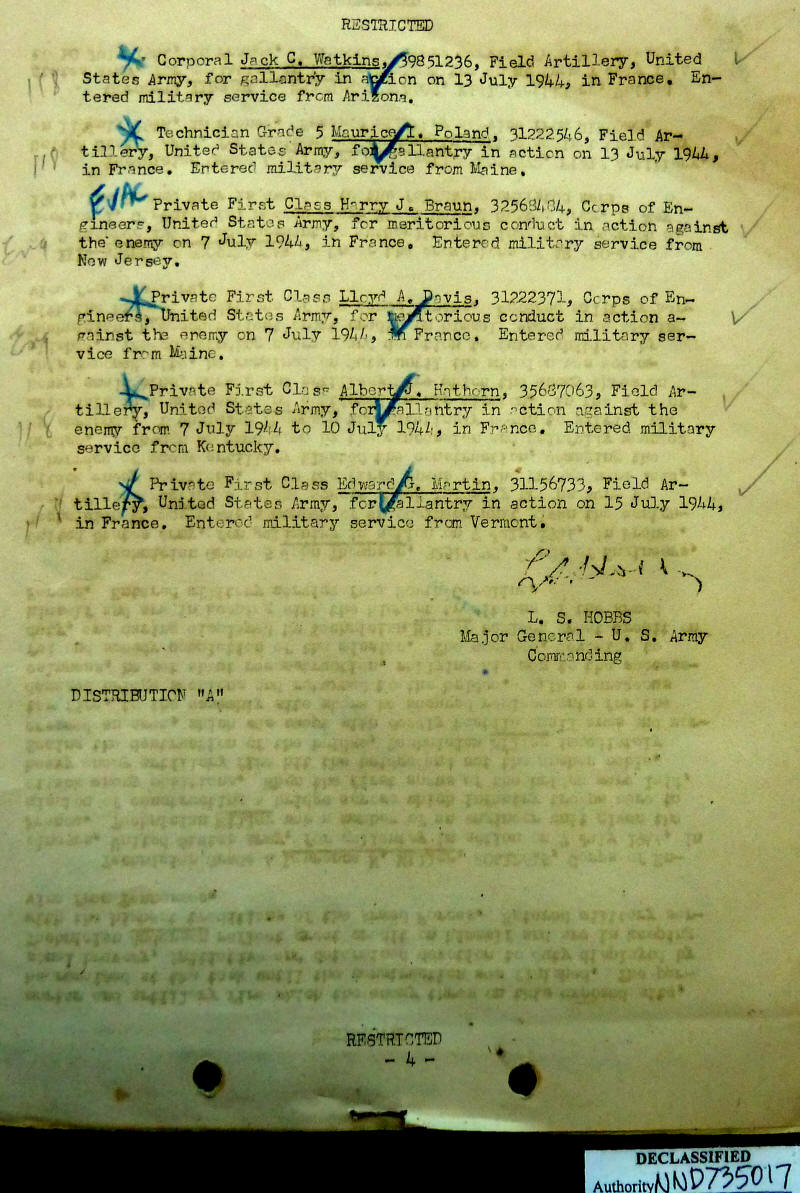 RESTRICTED
Corporal Jack C. Watkins, 39851236, Field Artillery, United
States Army, for gallantry in action on 13 July 1944, in France. En-
tered military service from Arizona.
Technician Grade 5 Maurice I. Poland, 31222546, Field Ar-
tillery, United States Army, for gallantry in action on 13 July 1944,
in France. Entered military service from Maine.
Private First Class Harry J. Braun, Corps of En-
gineers, United States Army, for meritorious conduct in action against
the enemy on 7 July 1944, in France. Entered military service from
New Jersey.
Private First Class Lloyd A. Davis, 31222371, Corps of En-
gineers, United States Army, for meritorious conduct in action a-
gainst the enemy on 7 July 1944, in France. Entered military ser-
vice from Maine.
Private First Class Albert J. Hathorn, 35687063, Field Ar-
tillery, United States Army, for gallantry in action against the
enemy from 7 July 1944 to 10 July 1944, in France. Entered military
service from Kentucky.
Private First Class Edward G. Martin, 31156733, Field Ar-
tillery, United States Army, for gallantry in action on 15 July 1944,
in France. Entered military service from Vermont.
L. S. HOBBS
Major General - U. S. Army
Commanding
DISTRIBUTION "A"
RESTRICTED
- 4 -
DECLASSIFIED
Authority NND735017